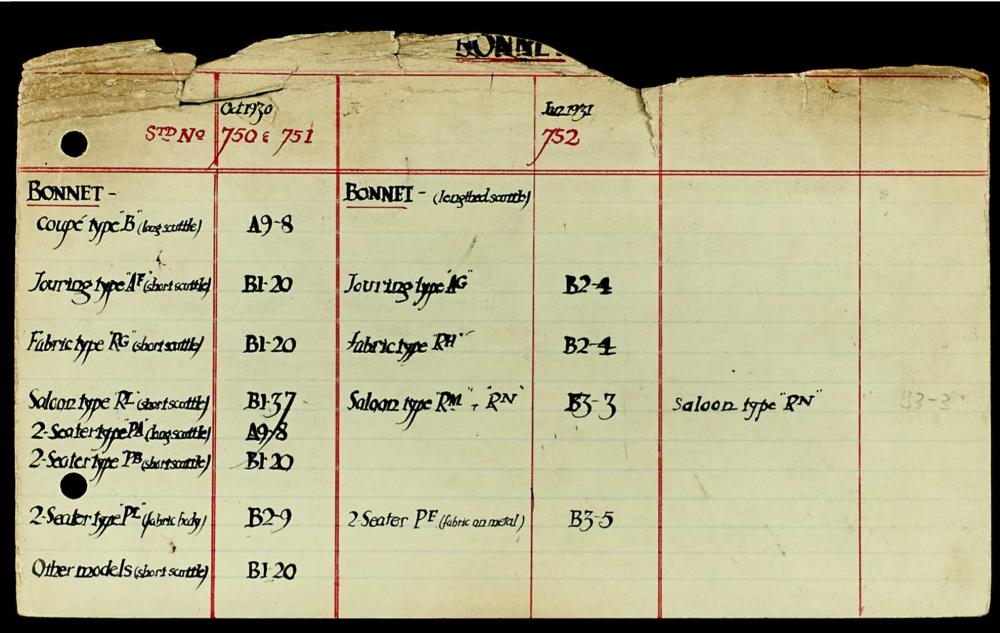 BONNET
Oct 1930 Jan 1931
STD No 750 & 751 752
BONNET - BONNET - (lengthed scuttle)
Coupé type "B" (long scuttle) A9-8
Touring type "AF" (short scuttle) B1-20 Touring type "AG" B2-4
Fabric type "RG" (short scuttle) B1-20 Fabric type "RH" B2-4
Saloon type "RL" (short scuttle) B1-37 Saloon type "RM" + "RN" B3-3 Saloon type "RN" B3-3
2-Seater type "PA" (long scuttle) A9-8
2-Seater type "PB" (short scuttle) B1-20
2-Seater type "PL" (fabric body) B2-9 2-Seater PF (fabric on metal) B3-5
Other models (short scuttle) B1-20